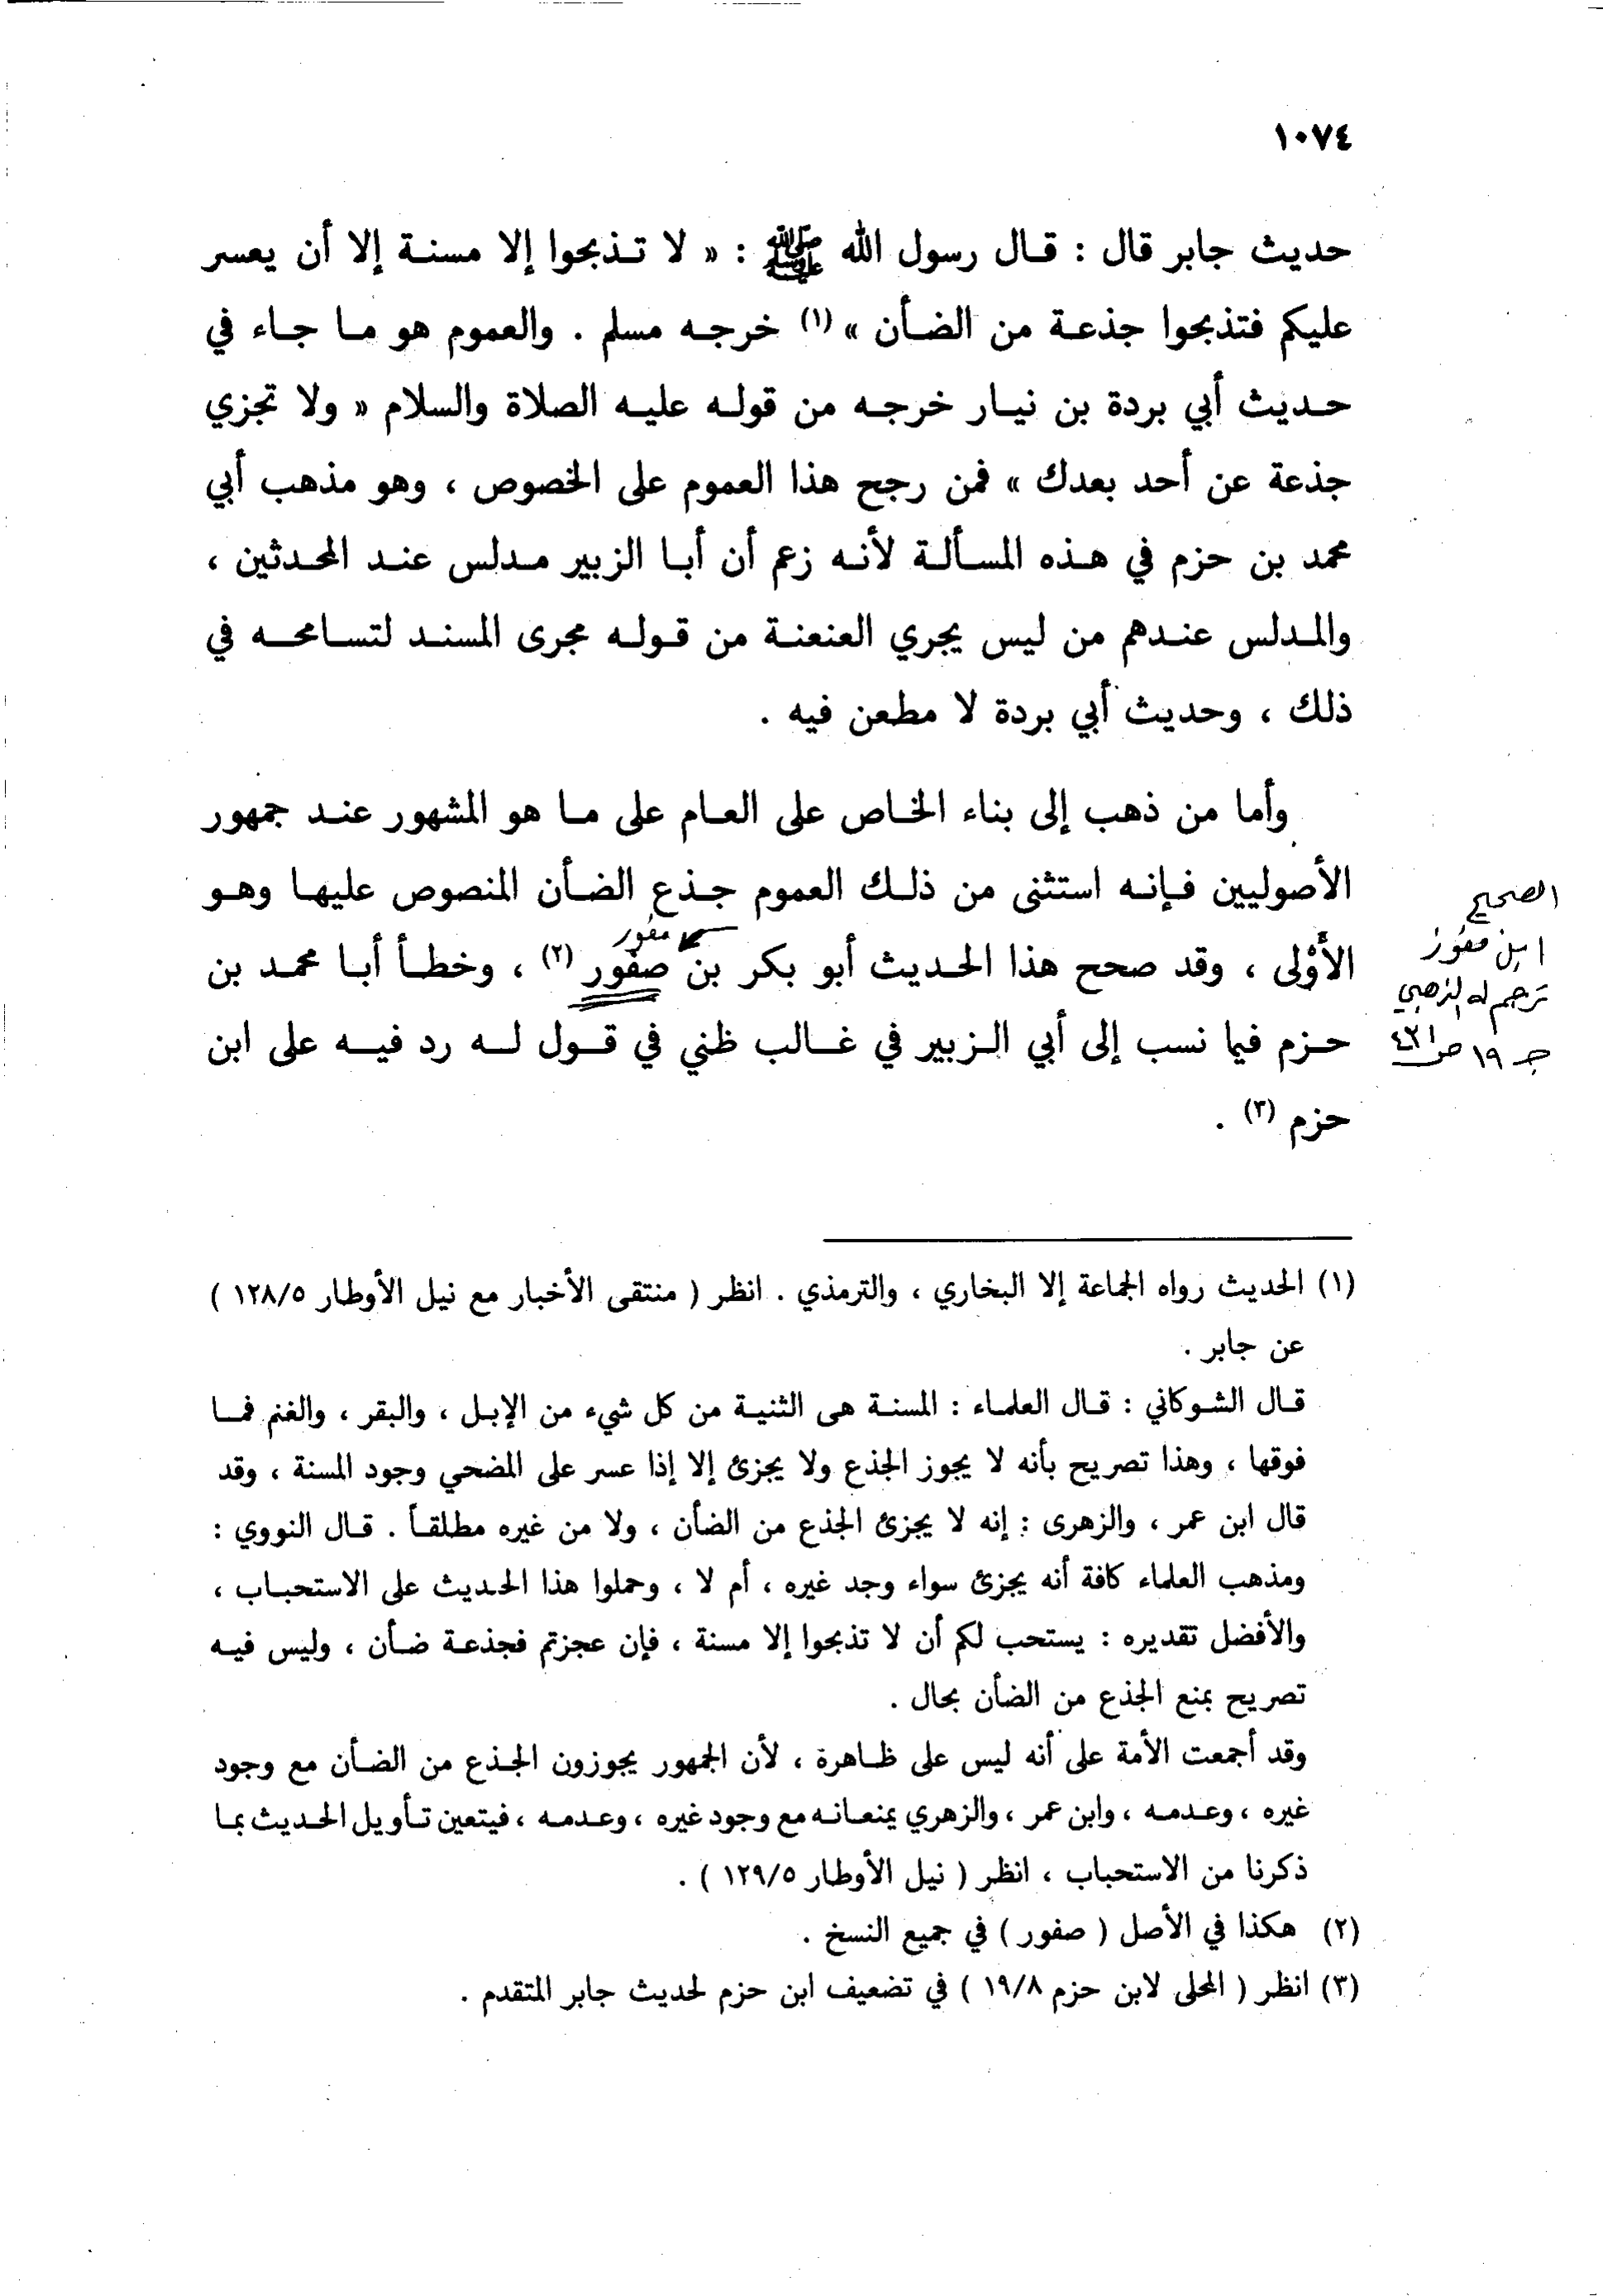 ١٠٧٤
حديث جابر قال : قال رسول الله ﷺ : « لا تذبحوا إلا مسنة إلا أن يعسر
عليكم فتذبحوا جذعة من الضأن » (١) خرجه مسلم . والعموم هو ما جاء في
حديث أبي بردة بن نيار خرجه من قوله عليه الصلاة والسلام « ولا تجزي
جذعة عن أحد بعدك » فمن رجح هذا العموم على الخصوص ، وهو مذهب أبي
محمد بن حزم في هذه المسألة لأنه زعم أن أبا الزبير مدلس عند المحدثين ،
والمدلس عندهم من ليس يجري العنعنة من قوله مجرى المسند لتسامحه في
ذلك ، وحديث أبي بردة لا مطعن فيه .
وأما من ذهب إلى بناء الخاص على العام على ما هو المشهور عند جمهور
الأصوليين فإنه استثنى من ذلك العموم جذع الضأن المنصوص عليها وهو
مفوز
الأَوْلى ، وقد صحح هذا الحديث أبو بكر بن صفور (٢) ، وخطأ أبا محمد بن
حزم فيما نسب إلى أبي الزبير في غالب ظني في قول له رد فيه على ابن
حزم (٣) .
الصحيح
ابن مفوز
ترجم له الذهبي
جـ ١٩ ص ٤٢١
(١) الحديث رواه الجماعة إلا البخاري ، والترمذي . انظر ( منتقى الأخبار مع نيل الأوطار ١٢٨/٥ )
عن جابر .
قال الشوكاني : قال العلماء : المسنة هى الثنية من كل شيء من الإبل ، والبقر ، والغنم فما
فوقها ، وهذا تصريح بأنه لا يجوز الجذع ولا يجزئ إلا إذا عسر على المضحي وجود المسنة ، وقد
قال ابن عمر ، والزهرى : إنه لا يجزئ الجذع من الضأن ، ولا من غيره مطلقاً . قال النووي :
ومذهب العلماء كافة أنه يجزئ سواء وجد غيره ، أم لا ، وحملوا هذا الحديث على الاستحباب ،
والأفضل تقديره : يستحب لكم أن لا تذبحوا إلا مسنة ، فإن عجزتم فجذعة ضأن ، وليس فيه
تصريح بمنع الجذع من الضأن بحال .
وقد أجمعت الأمة على أنه ليس على ظاهرة ، لأن الجمهور يجوزون الجذع من الضأن مع وجود
غيره ، وعدمه ، وابن عمر ، والزهري يمنعانه مع وجود غيره ، وعدمه ، فيتعين تأويل الحديث بما
ذكرنا من الاستحباب ، انظر ( نيل الأوطار ١٢٩/٥ ) .
(٢) هكذا في الأصل ( صفور ) في جميع النسخ .
(٣) انظر ( المحلى لابن حزم ١٩/٨ ) في تضعيف ابن حزم لحديث جابر المتقدم .